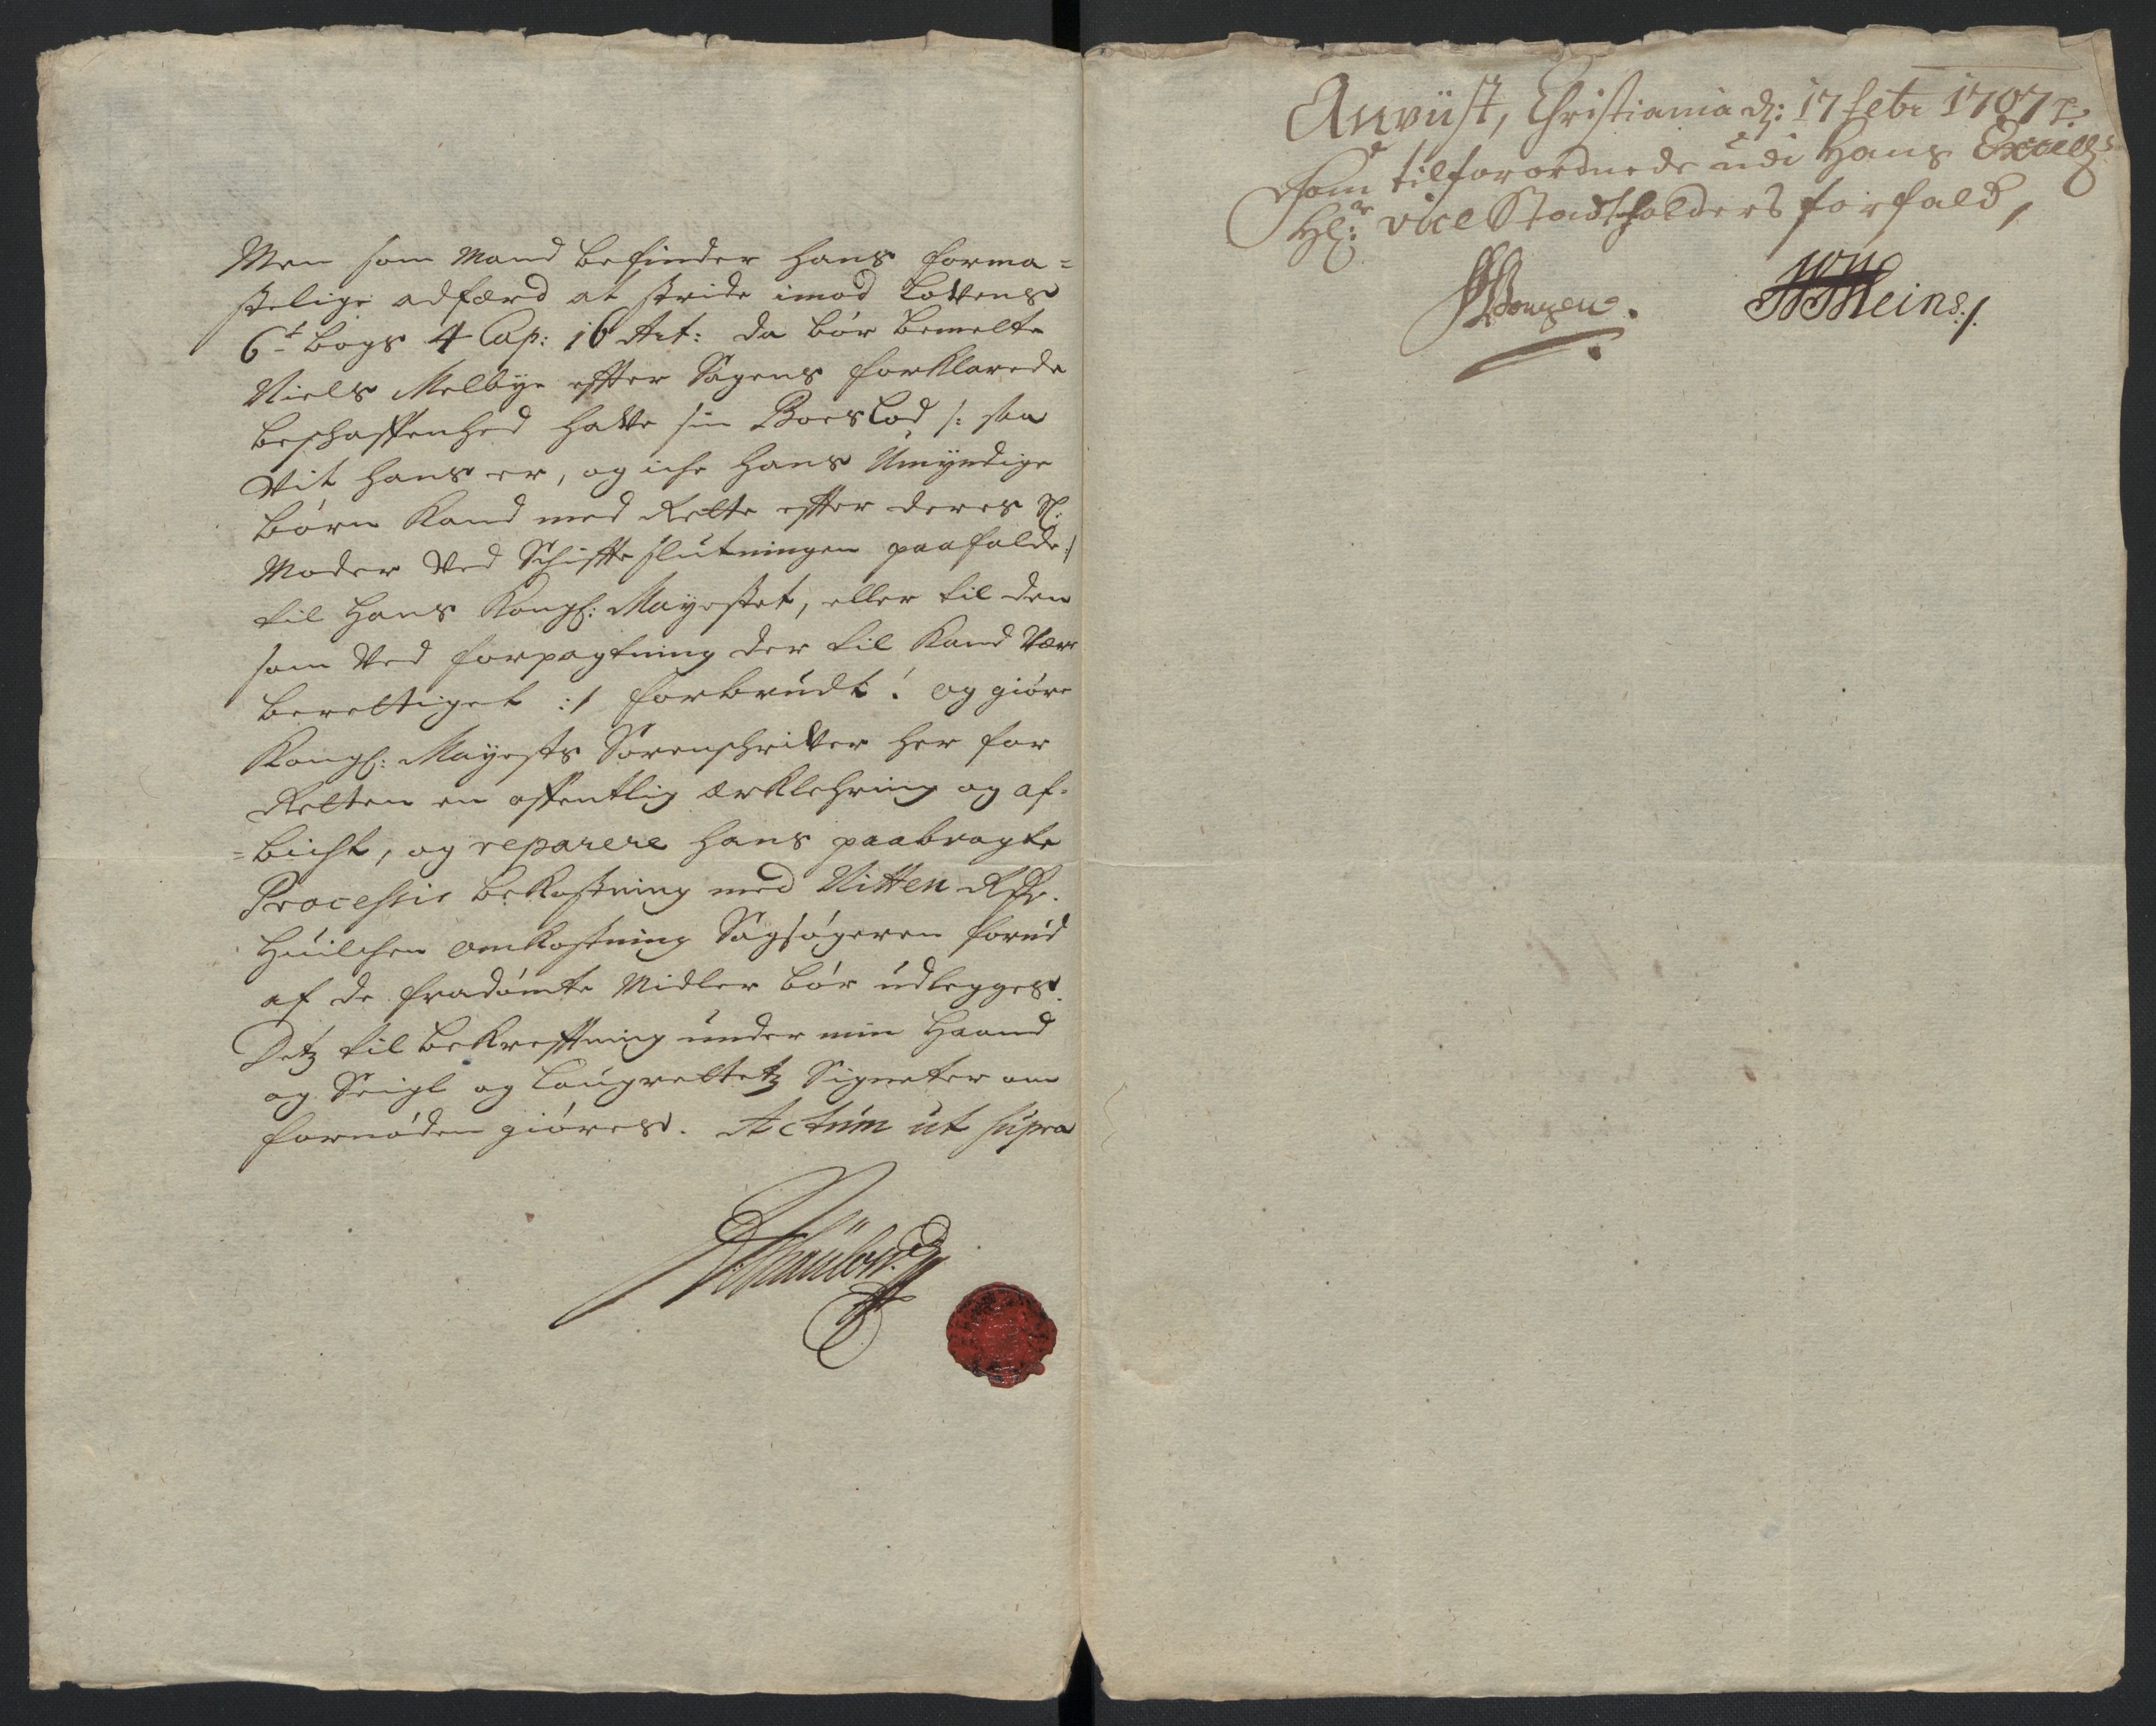 Men som Mand befinder hans forma=
stelige adfærd at stride imod Lovens
6t bogs 4 Cap: 16 Art: da bør bemelte
Niels Melbye effter Sagens forklarede
beschaffenhed hafve sin Boeslod /: saa
Vit hans er, og iche hans Umyndige
børn kand med Rette effter deres Sl:
Moder Ved Schifftesluttningen paafalde :/
til Hans Kongl: Mayestet, eller til den
som Ved forpagtning der til kand Være
berettiget :/ forbrudt! og giøre
Kongl: Mayests Sorenschrifver her for
Retten en offentlig ærklehring og af=
=bicht, og reparere hans paabragte
Processis bekostning med Nitten Rdr.
Huilchen omkostning Sagsøgeren forud
af de fradømte Midler bør udlegges.
Detz til bekrefftning under min Haand
og Seigl og Laugrettetz Signeter om
fornøden giøres. Actum ut supra
Anvüst, Christiania d: 17 febr 1707
Som tilforordnede udi Hans Excell:s
Hr: vice Stadtholders forfald,